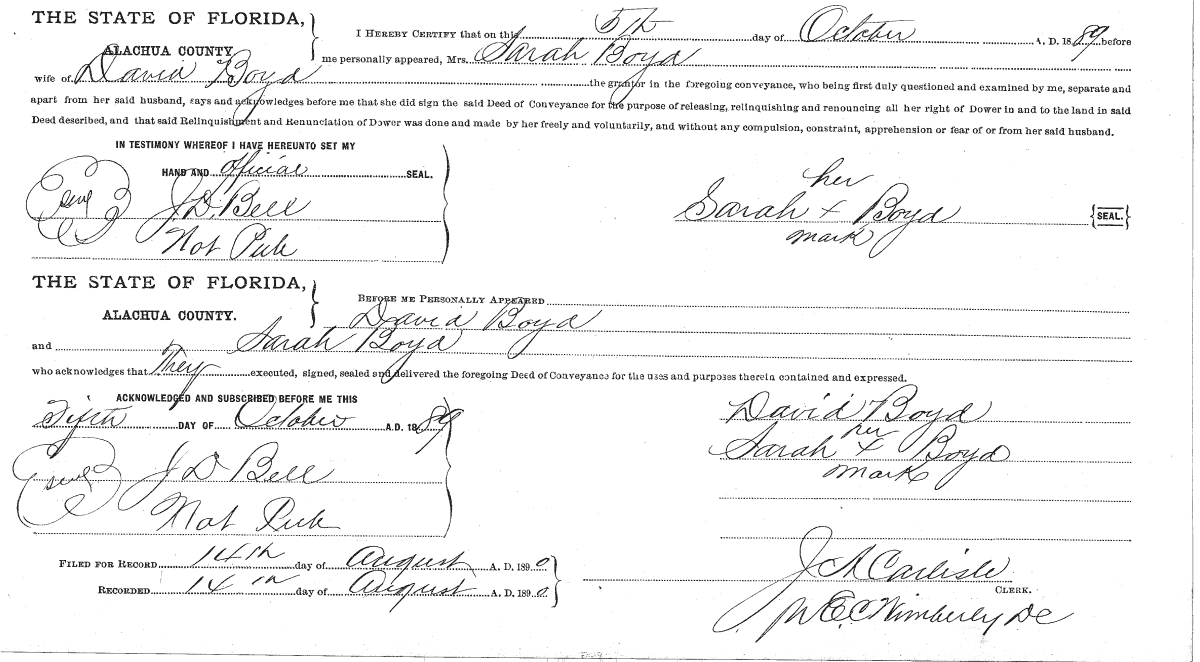 THE STATE OF FLORIDA,
ALACHUA COUNTY.
I HEREBY CERTIFY that on this 5th day of October A. D. 1889 before
me personally appeared, Mrs. Sarah Boyd
wife of David Boyd the grantor in the foregoing conveyance, who being first duly questioned and examined by me, separate and
apart from her said husband, says and acknowledges before me that she did sign the said Deed of Conveyance for the purpose of releasing, relinquishing and renouncing all her right of Dower in and to the land in said
Deed described, and that said Relinquishment and Renunciation of Dower was done and made by her freely and voluntarily, and without any compulsion, constraint, apprehension or fear of or from her said husband.
IN TESTIMONY WHEREOF I HAVE HEREUNTO SET MY
HAND AND official SEAL.
Seal J. D. Bell
Not Pub
her
Sarah + Boyd {SEAL.}
mark
THE STATE OF FLORIDA,
ALACHUA COUNTY.
BEFORE ME PERSONALLY APPEARED
David Boyd
and Sarah Boyd
who acknowledges that They executed, signed, sealed and delivered the foregoing Deed of Conveyance for the uses and purposes therein contained and expressed.
ACKNOWLEDGED AND SUBSCRIBED BEFORE ME THIS
Fifth DAY OF October A.D. 1889
Seal J D Bell
Not Pub
David Boyd
her
Sarah + Boyd
mark
FILED FOR RECORD 14th day of August A. D. 1890
RECORDED 14th day of August A. D. 1890
J A Carlisle
CLERK.
Wimberly DC